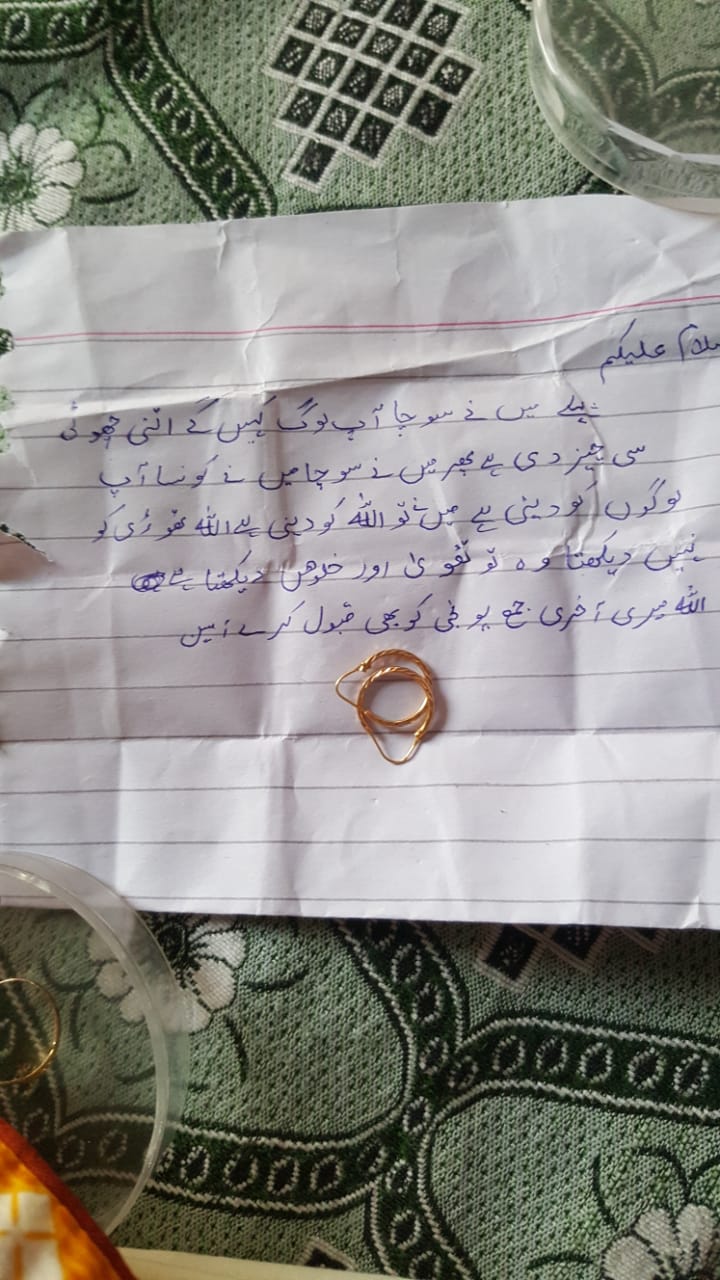 سلام علیکم
پہلے میں نے سوچا آپ لوگ کہیں گے اتنی چھوٹی
سی چیز دی ہے پھر میں نے سوچا میں نے کونسا آپ
لوگوں کو دینی ہے میں نے تو اللہ کو دینی ہے اللہ تھوڑی کو
نہیں دیکھتا وہ تو تقویٰ اور خلوص دیکھتا ہے
اللہ میری آخری جمع پونجی کو بھی قبول کرے آمین